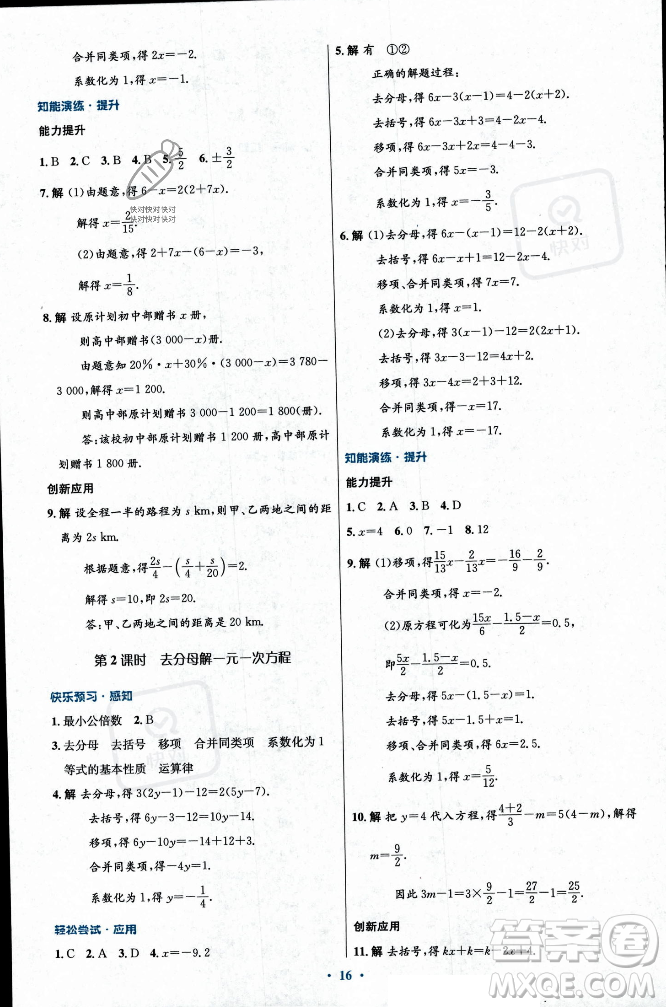 合并同类项,得 2x=-2.
系数化为 1,得 x=-1.
知能演练·提升
能力提升
1.B 2.C 3.B 4.B 5.5/2 6.±3/2
7.解 (1)由题意,得 6-x=2(2+7x).
解得 x=2/15.
(2)由题意,得 2+7x-(6-x)=-3,
解得 x=1/8.
8.解 设原计划初中部赠书 x 册,
则高中部赠书(3 000-x)册,
由题意知 20%·x+30%·(3 000-x)=3 780-
3 000,解得 x=1 200.
则高中部原计划赠书 3 000-x=1 800(册).
答:该校初中部计划赠书 1 200 册,高中部原计
划赠书 1 800 册.
创新应用
9.解 设全程一半的路程为 s km,则甲、乙两地之间的距
离为 2s km.
根据题意,得 2s/4-(s/4+s/20)=2,
解得 s=10,即 2s=20.
答:甲、乙两地之间的距离是 20 km.
第 2 课时 去分母解一元一次方程
快乐预习·感知
1.最小公倍数 2.B
3.去分母 去括号 移项 合并同类项 系数化为 1
等式的基本性质 运算律
4.解 去分母,得 3(2y-1)-12=2(5y-7).
去括号,得 6y-3-12=10y-14.
移项,得 6y-10y=-14+3+12.
合并同类项,得-4y=1.
系数化为 1,得 y=-1/4.
轻松尝试·应用
1.C 2.A 3.A 4.x=-9.2
5.解 有 ①②
正确的解题过程:
去分母,得 6x-3(x-1)=4-2(x+2).
去括号,得 6x-3x+3=4-2x-4.
移项,得 6x-3x+2x=4-4-3.
合并同类项,得 5x=-3.
系数化为 1,得 x=-3/5.
6.解 (1)去分母,得 3(x+1)-12=2(2x+1).
去括号,得 3x+3-12=4x+2.
移项、合并同类项,得-x=11.
系数化为 1,得 x=-11.
(2)去分母,得 3(3x-1)-12=2(5x-7).
去括号,得 9x-3-12=10x-14.
移项,得 9x-10x=-14+3+12.
合并同类项,得-x=1.
系数化为 1,得 x=-1.
知能演练·提升
能力提升
1.C 2.A 3.B 4.D
5.x=4 6.0 7.-1 8.12
9.解 (1)移项,得 15/13x-2/13x=-16/9-2/9.
合并同类项,得 x=-2.
(2)原方程可化为 15x/6-1.5-x/2=0.5,
即 5x/2-1.5-x/2=0.5.
去分母,得 5x-(1.5-x)=1.
去括号,得 5x-1.5+x=1.
移项、合并同类项,得 6x=5/2.
系数化为 1,得 x=5/12.
10.解 把 y=4 代入方程,得 4+2/3-m=5(4-m),解得
m=9/2.
因此 3m-1=3×9/2-1=27/2-1=25/2.
创新应用
11.解 去括号,得 kx+k=k-2x+4.
16